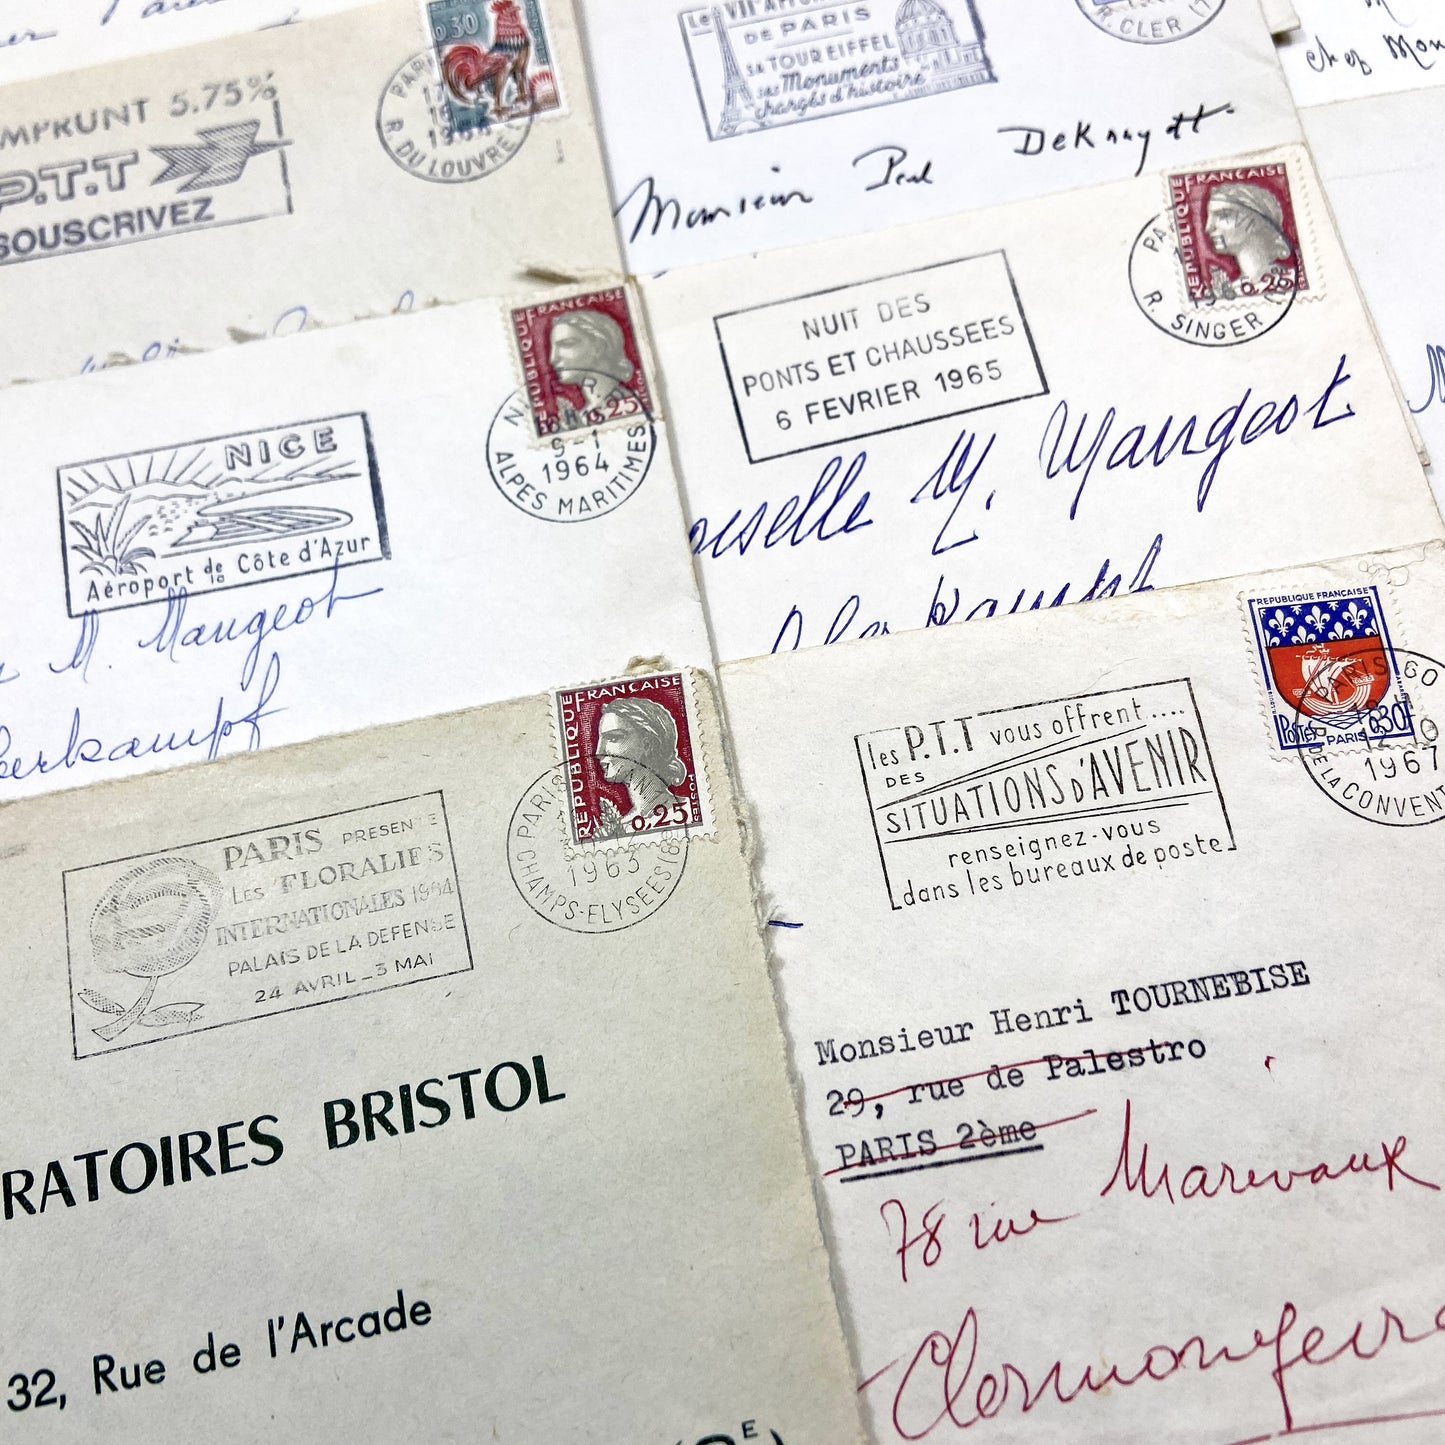 0,30
PARIS
R. DU LOUVRE
EMPRUNT 5.75%
P.T.T
SOUSCRIVEZ
DE PARIS
SA TOUR EIFFEL
ses Monuments
chargés d'histoire
R. CLER
Monsieur Paul DeKnuydtt
chez Mon
REPUBLIQUE FRANÇAISE
0,25
R. SINGER
NUIT DES
PONTS ET CHAUSSEES
6 FEVRIER 1965
oiselle M. Maugeot
REPUBLIQUE FRANÇAISE
0,25
9-1
1964
ALPES MARITIMES
NICE
Aéroport de la Côte d'Azur
M. Maugeot
erkampf
REPUBLIQUE FRANÇAISE
POSTES
0,25
PARIS
1963
CHAMPS-ELYSEES (8
PARIS PRESENTE
LES FLORALIES
INTERNATIONALES 1964
PALAIS DE LA DEFENSE
24 AVRIL_3 MAI
RATOIRES BRISTOL
32, Rue de l'Arcade
REPUBLIQUE FRANÇAISE
Postes PARIS 0,30F
PARIS 60
1967
R. DE LA CONVENT
les P.T.T vous offrent....
DES
SITUATIONS D'AVENIR
renseignez-vous
dans les bureaux de poste
Monsieur Henri TOURNEBISE
29, rue de Palestro
PARIS 2ème
78 rue Marivaux